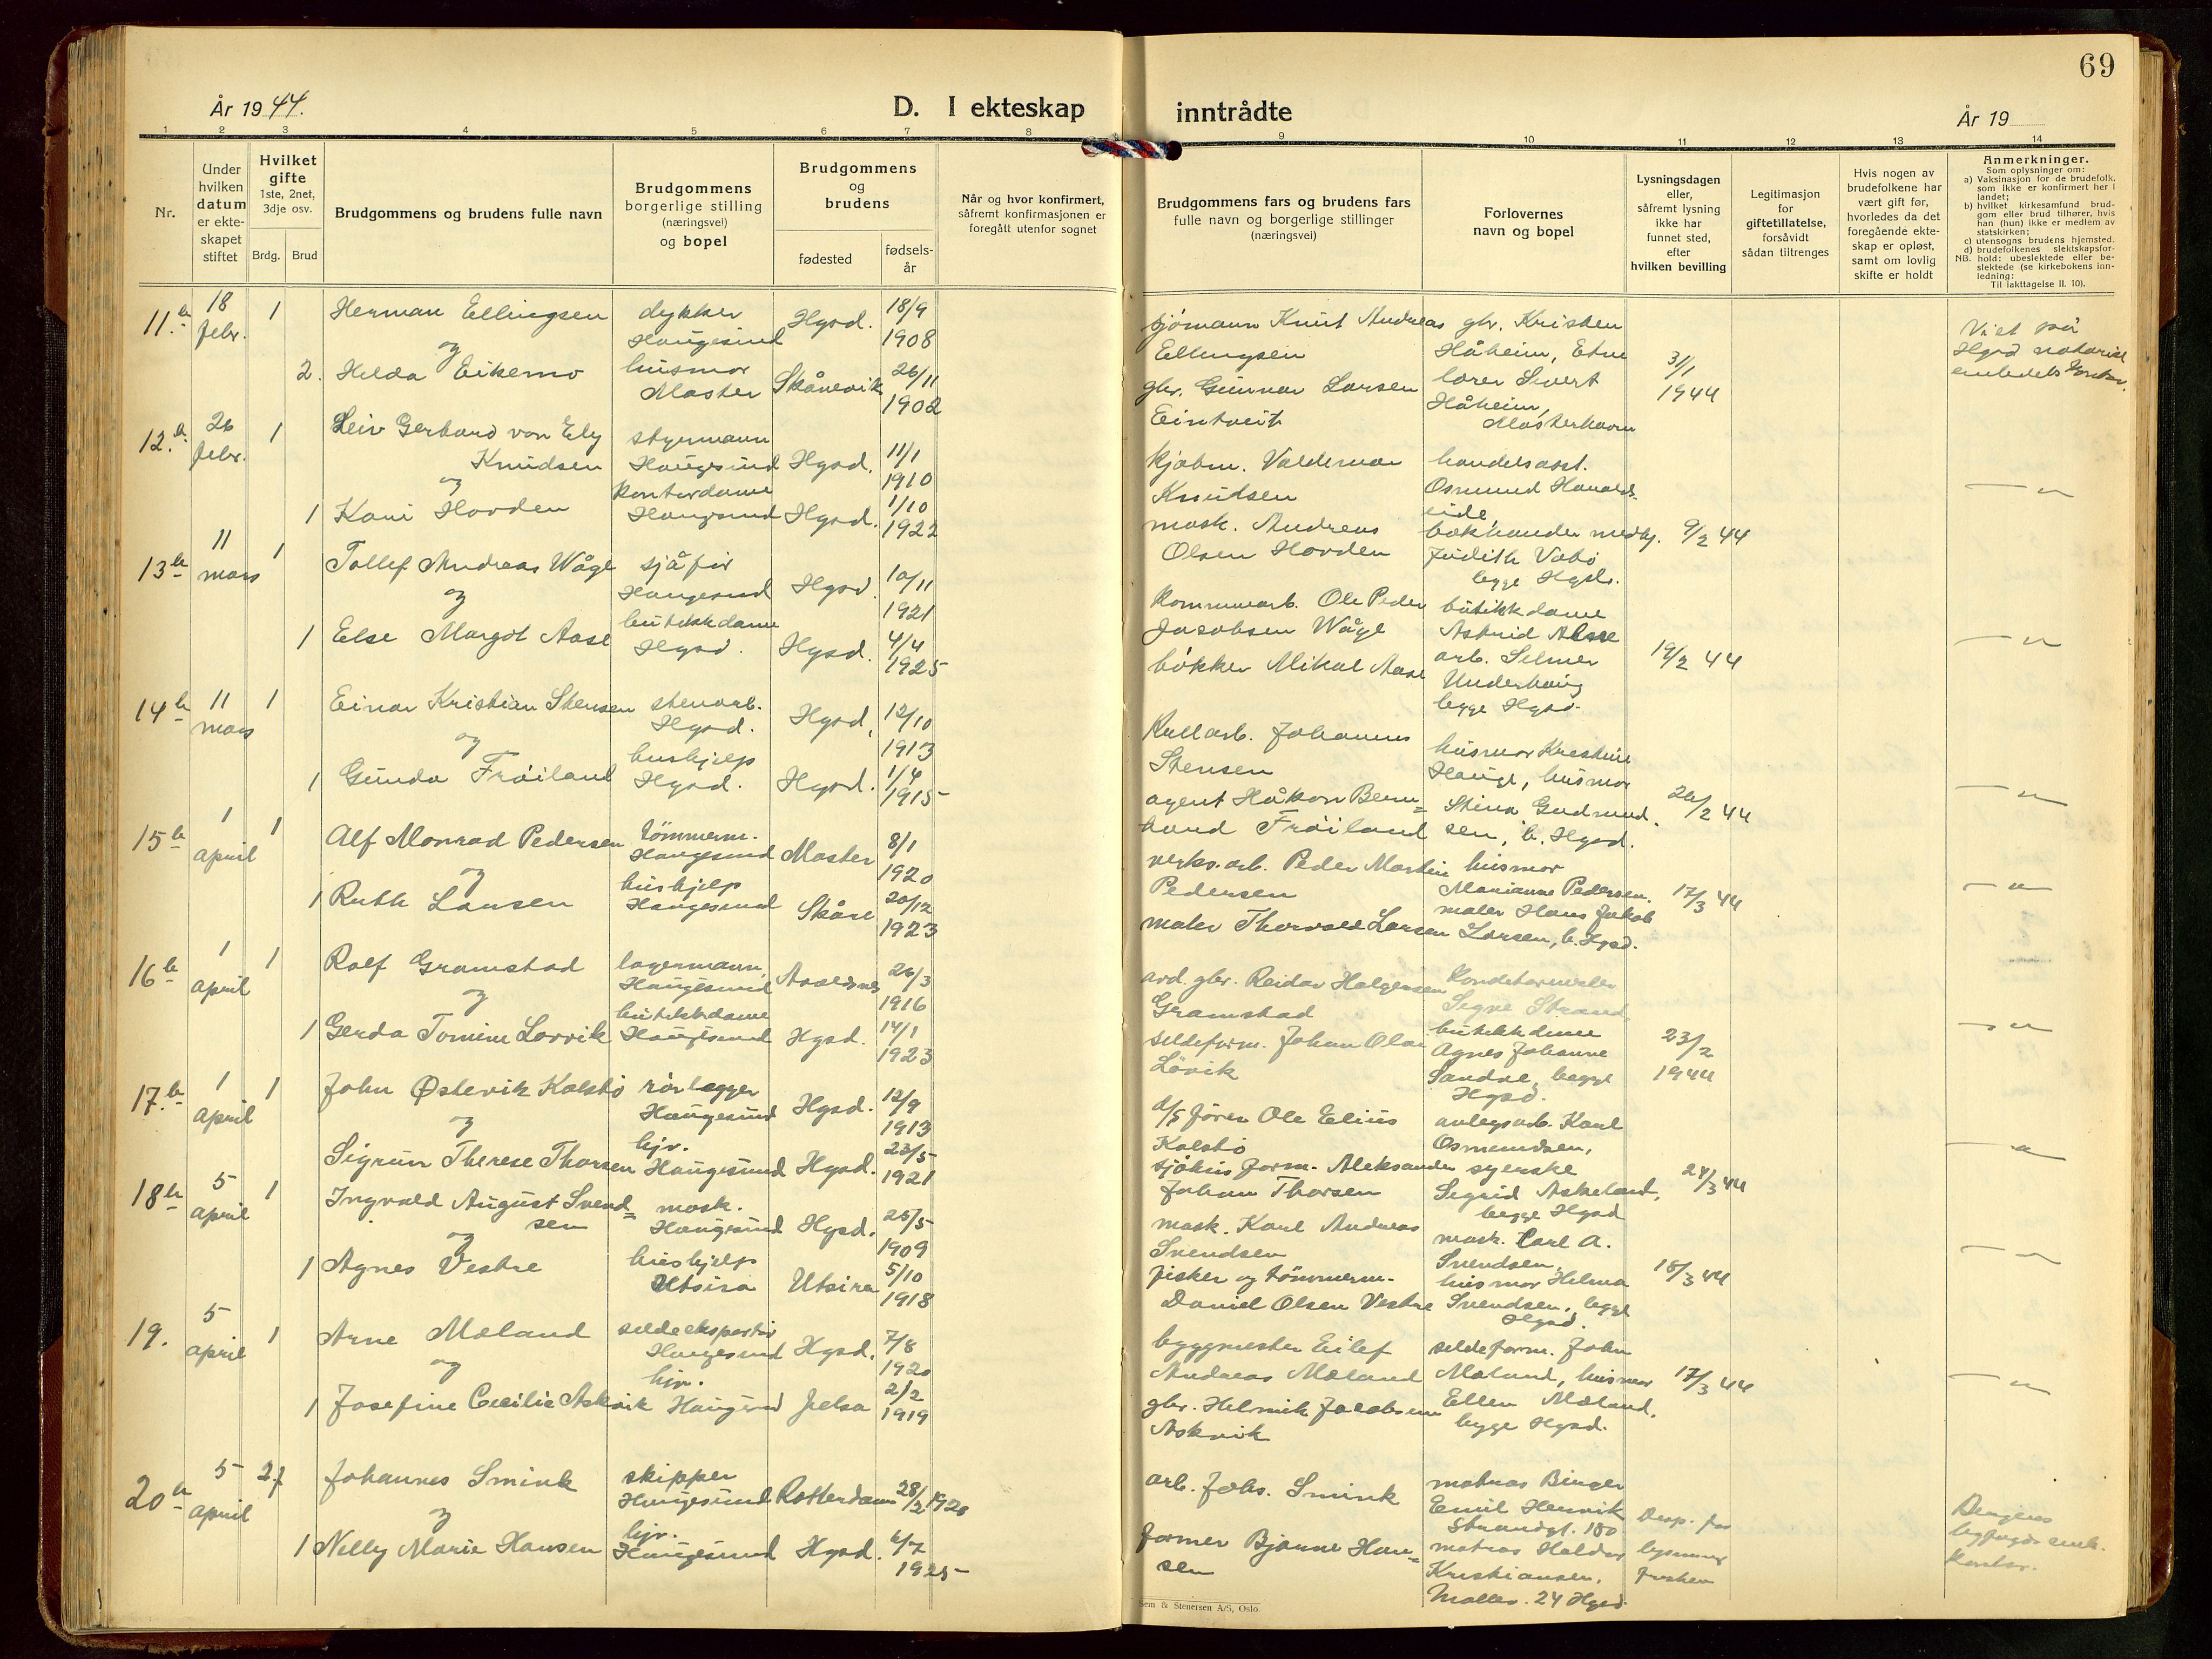 69
År 1944.
D. I ekteskap inntrådte
År 19
1 2 3 4 5 6 7 8 9 10 11 12 13 14
Nr.
Under
hvilken
datum
er ekte-
skapet
stiftet
Hvilket
gifte
1ste, 2net,
3dje osv.
Brdg. Brud
Brudgommens og brudens fulle navn
Brudgommens
borgerlige stilling
(næringsvei)
og bopel
Brudgommens
og
brudens
fødested
fødsels-
år
Når og hvor konfirmert,
såfremt konfirmasjonen er
foregått utenfor sognet
Brudgommens fars og brudens fars
fulle navn og borgerlige stillinger
(næringsvei)
Forlovernes
navn og bopel
Lysningsdagen
eller,
såfremt lysning
ikke har
funnet sted,
efter
hvilken bevilling
Legitimasjon
for
giftetillatelse,
forsåvidt
sådan tiltrenges
Hvis nogen av
brudefolkene har
vært gift før,
hvorledes da det
foregående ekte-
skap er opløst,
samt om lovlig
skifte er holdt
Anmerkninger.
Som oplysninger om:
a) Vaksinasjon for de brudefolk,
som ikke er konfirmert her i
landet;
b) hvilket kirkesamfund brud-
gom eller brud tilhører, hvis
han (hun) ikke er medlem av
statskirken;
c) utensogns brudens hjemsted.
d) brudefolkenes slektskapsfor-
NB. hold: ubeslektede eller be-
slektede (se kirkebokens inn-
ledning:
Til iakttagelse II. 10).
11. 18 febr. 1 Herman Ellingsen dykker Haugesund Hgsd. 18/9 1908
og
2. Helda Eikemo husmor Moster Skånevik 26/11 1902
sjómann Knut Andreas
Ellingsen
gbr. Gunnar Larsen
Eintveit
gbr. Kristen
Håheim, Etne
lærer Sivert
Håheim,
Mosterhavn
31/1
1944
Viet på
Hgsd notarial
embedets kontor.
12. 26 febr. 1 Leiv Gerhard von Ely
Knudsen styrmann Haugesund Hgsd. 11/1 1910
og
1 Kari Hovden kontordame Haugesund Hgsd. 1/10 1922
kjøbm. Valdemar
Knudsen
mask. Andreas
Olsen Hovden
handelsasst.
Osmund Havalds-
eide,
bokhandler medhj.
Judith Vabó
begge Hgsd.
9/2 44
— " —
13 11 mars 1 Tollef Andreas Wåge sjåfór Haugesund Hgsd. 10/11 1921
og
1 Else Margot Aase butikkdame Hgsd. Hgsd. 4/4 1925
kommunearb. Ole Peder
Jacobsen Wåge
bókker Mikal Aase
butikkdame
Astrid Aase
arb. Selmer
Underhaug
begge Hgsd.
19/2 44
— " —
14 11 mars 1 Einar Kristian Stensen stenarb. Hgsd. Hgsd. 12/10 1913
og
1 Gunda Fróiland hushjelp Hgsd. Hgsd. 1/4 1915
kullarb. Johannes
Stensen
agent Håkon Bern=
hard Fróiland
husmor Kristine
Hauge, husmor
Stina Gudmund.
sen, b. Hgsd.
26/2 44
— " —
15 1 april 1 Alf Monrad Pedersen tömmerm. Haugesund Moster 8/1 1920
og
1 Ruth Larsen hushjelp Haugesund Skåre 20/12 1923
verks.arb. Peder Martin
Pedersen
maler Thorvald Larsen
husmor
Marianne Pedersen.
maler Hans Jakob
Larsen, b. Hgsd.
17/3 44
— " —
16 1 april 1 Rolf Gramstad lagermann, Haugesund 26/3 1916
og
1 Gerda Tomine Lovvik butikkdame Haugesund Hgsd. 14/1 1923
avd. gbr. Reidar Helgesen
Gramstad
seldeform. Johan Olai
Lövik
Signe Strand,
butikkdame
Agnes Johanne
Sandve, begge
Hgsd.
23/2
1944
— " —
17. 1 april 1 John Østevik Kolstó rörlegger Haugesund Hgsd. 12/9 1913
og
Sigrun Therese Thorsen hjv. Haugesund Hgsd. 23/5 1921
d/s fórer Ole Elius
Kolstó
sjóhus form. Aleksander
Johan Thorsen
anlegsarb. Karl
Osmundsen,
syerske
Sigrid Askeland,
begge Hgsd
24/3 44
— " —
18 5 april 1 Ingvald August Svend=
sen mask. Haugesund Hgsd. 25/5 1909
og
1 Agnes Vestre hushjelp Utsira Utsira 5/10 1918
mask. Karl Andreas
Svendsen
fisker og tömmerm.
Daniel Olsen Vestre
mask. Carl A.
Svendsen,
husmor Helma
Svendsen, begge
Hgsd.
18/3 44
— " —
19. 5 april 1 Arne Mæland seldeeksportør, Haugesund Hgsd. 7/8 1920
og
1 Josefine Cecilie Askvik hjv. Haugesund Jelsa 2/2 1919
byggmester Eilef
Andreas Mæland
gbr. Helmik Jacobsen
Askvik
seldeform. John
Mæland, husmor
Ellen Mæland,
begge Hgsd.
17/3 44
— " —
20 5 april 2. Johannes Smink skipper Haugesund Rotterdam 28/2 1920
og
1 Nelly Marie Hansen hjv. Haugesund Hgsd. 6/7 1925
arb. Johs. Smink
former Bjarne Han=
sen
matros Binger
Emil Henrik
Strandgt. 180
matros Haldor
Kristiansen,
Møller. 24 Hgsd.
Disp. for
lysning
kontor.
Sem & Stenersen A/S, Oslo.